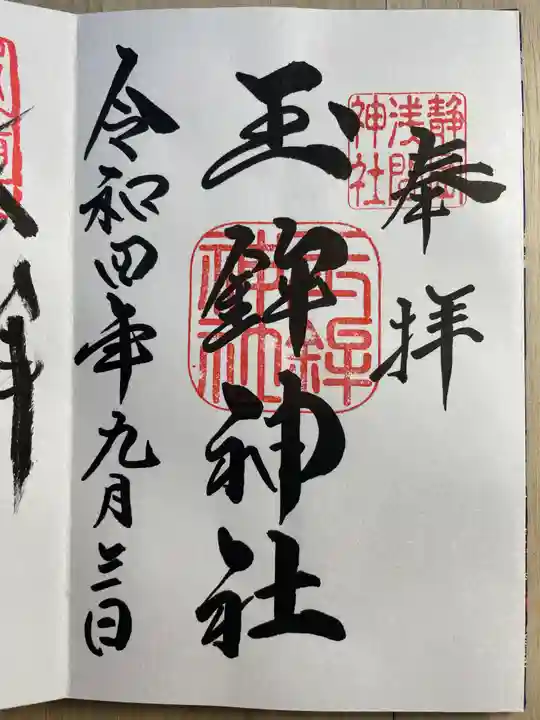 奉拝
静岡
浅間
神社
玉鉾神社
玉鉾
神社
令和四年九月三日